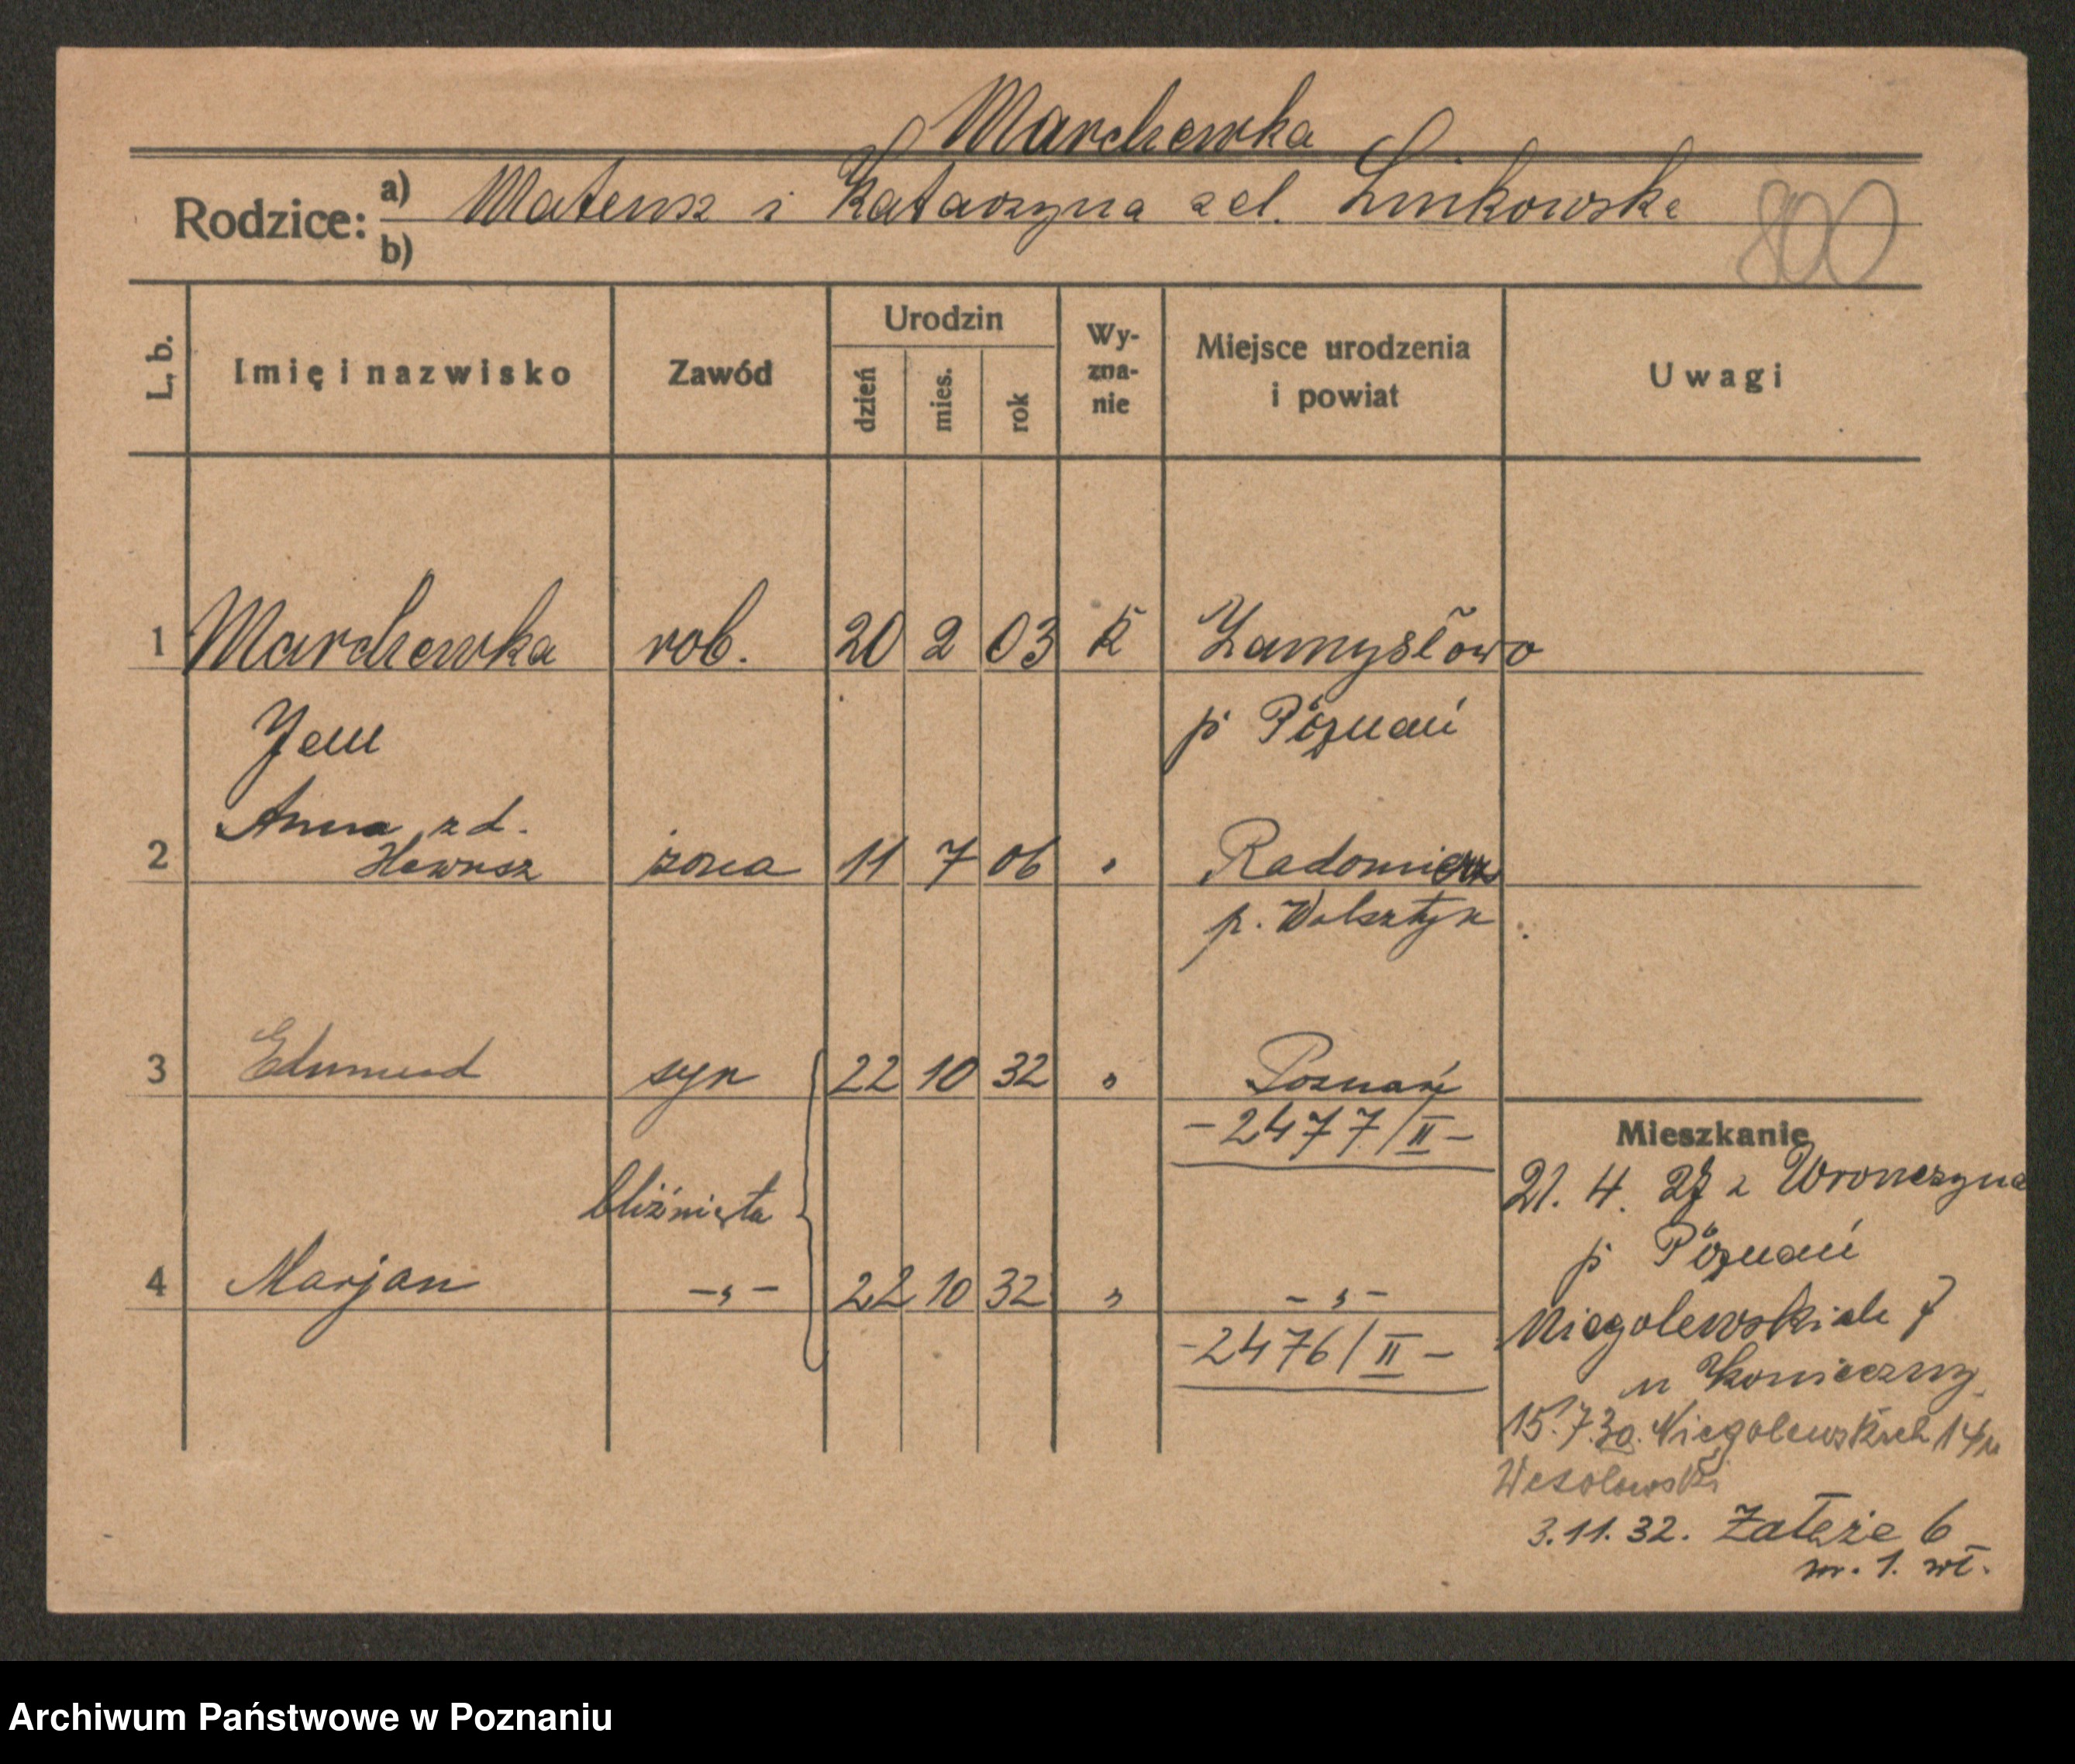 Marchewka
Rodzice: a) Mateusz i Katarzyna z d. Linkowska
b)
800
L. b.
Imię i nazwisko
Zawód
Urodzin
dzień
mies.
rok
Wy-
zna-
nie
Miejsce urodzenia
i powiat
Uwagi
1 Marchewka rob. 20 2 03 k Zamysłowo
Jan p Poznań
Anna z d.
2 żona 11 7 06 " Radomierz
p. Wolsztyn
3 Edmund syn 22 10 32 " Poznań
- 2477/II -
bliźnięta
4 Marjan -„- 22 10 32 " -„-
- 2476/II -
Mieszkanie
21. 4. 27 z Wronczyna
p Poznań
Niegolewskich 7
u Konieczny
15.7.30. Niegolewskich 14 u
Wesolowski
3.11.32. Załęże 6
m. 1. wł.
Archiwum Państwowe w Poznaniu